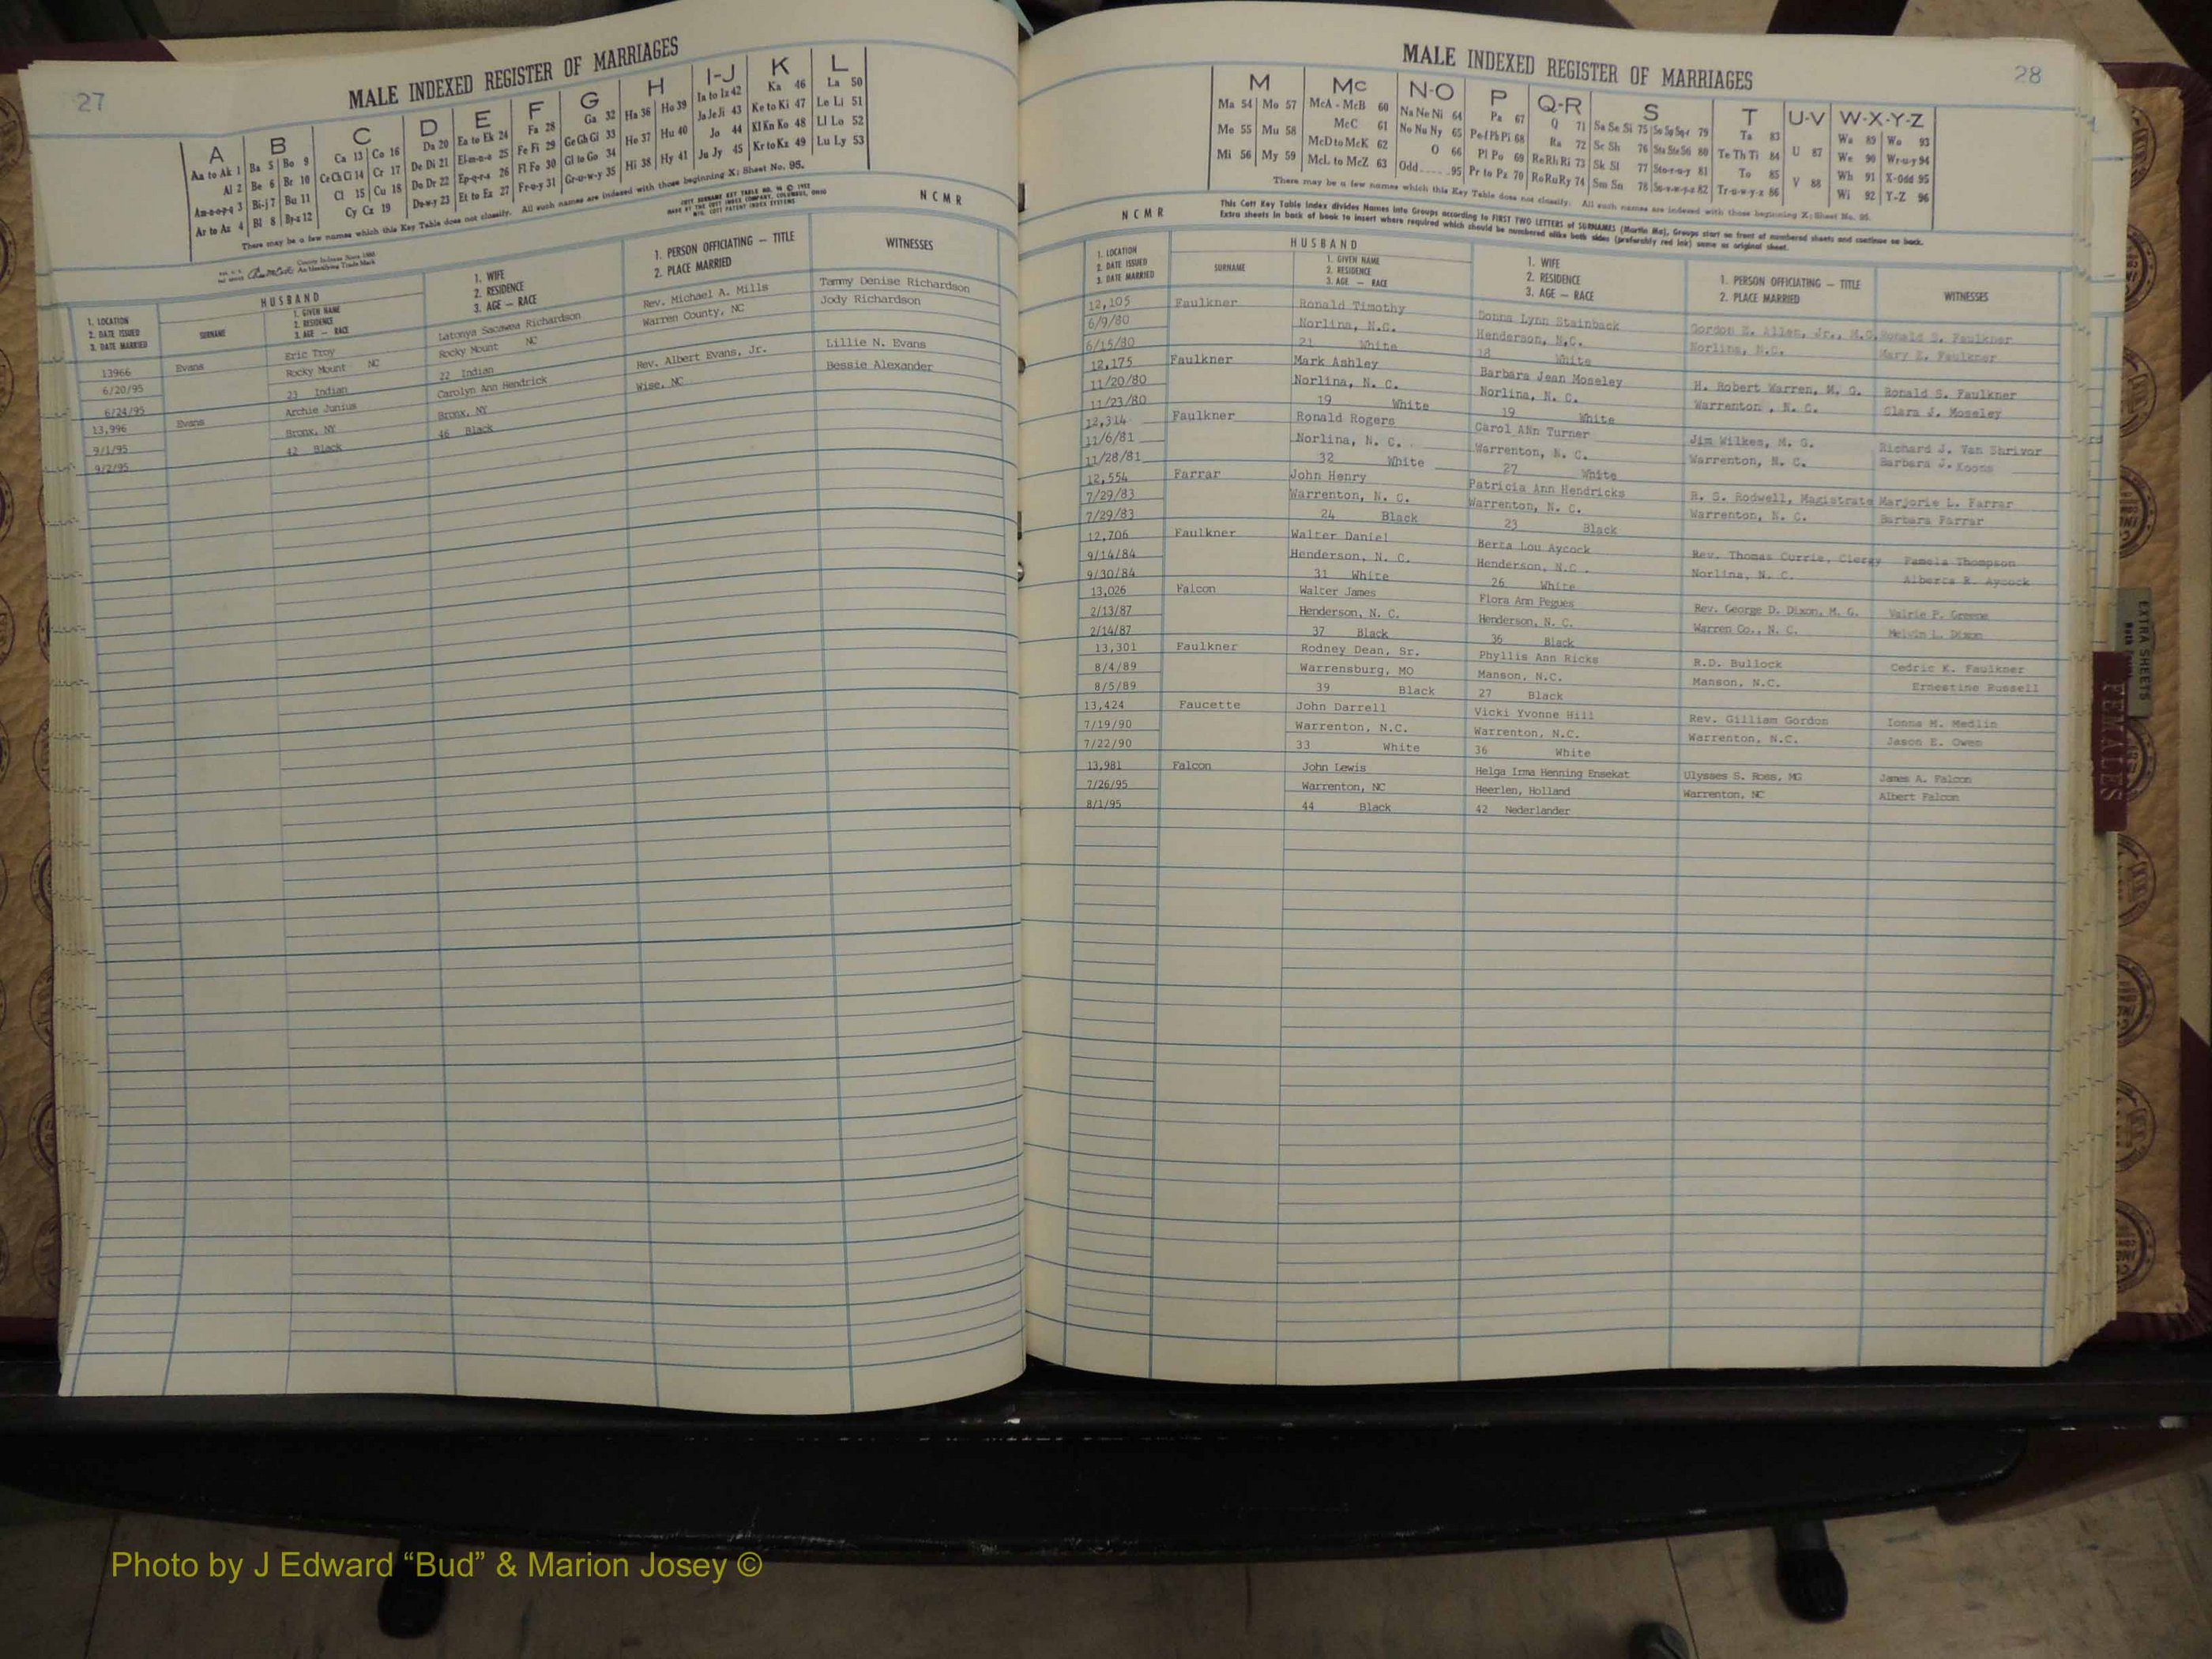 27
MALE INDEXED REGISTER OF MARRIAGES
A B C D E F G H I-J K L
Aa to Ak 1 Ba 5 Bo 9 Ca 13 Co 16 Da 20 Ea to Ek 24 Fa 28 Ga 32 Ha 36 Ho 39 Ia to Iz 42 Ka 46 La 50
Al 2 Be 6 Br 10 Ce Ch Ci 14 Cr 17 De Di 21 El-m-n-o 25 Fe Fi 29 Ge Gh Gi 33 He 37 Hu 40 Ja Je Ji 43 Ke to Ki 47 Le Li 51
Am-n-o-p-q 3 Bi-j 7 Bu 11 Cl 15 Cu 18 Do Dr 22 Ep-q-r-s 26 Fl Fo 30 Gl to Go 34 Hi 38 Hy 41 Jo 44 Kl Kn Ko 48 Ll Lo 52
Ar to Az 4 Bl 8 By-z 12 Cy Cz 19 Du-w-y 23 Et to Ez 27 Fr-u-y 31 Gr-u-w-y 35 Ju Jy 45 Kr to Kz 49 Lu Ly 53
There may be a few names which this Key Table does not classify. All such names are indexed with those beginning X; Sheet No. 95.
NCMR
1. LOCATION
2. DATE ISSUED
3. DATE MARRIED
HUSBAND
SURNAME
1. GIVEN NAME
2. RESIDENCE
3. AGE — RACE
1. WIFE
2. RESIDENCE
3. AGE — RACE
1. PERSON OFFICIATING — TITLE
2. PLACE MARRIED
WITNESSES
13966 Evans Eric Troy Latonya Sacawea Richardson Rev. Michael A. Mills Tammy Denise Richardson
6/20/95 Rocky Mount NC Rocky Mount NC Warren County, NC Jody Richardson
6/24/95 23 Indian 22 Indian
13,996 Evans Archie Junius Carolyn Ann Hendrick Rev. Albert Evans, Jr. Lillie N. Evans
9/1/95 Bronx, NY Bronx, NY Wise, NC Bessie Alexander
9/2/95 42 Black 46 Black
28
MALE INDEXED REGISTER OF MARRIAGES
M Mc N-O P Q-R S T U-V W-X-Y-Z
Ma 54 Mo 57 McA - McB 60 Na Ne Ni 64 Pa 67 Q 71 Sa Se Si 75 So Sp Sq-r 79 Ta 83 Wa 89 Wo 93
Me 55 Mu 58 McC 61 No Nu Ny 65 Pe-f Ph Pi 68 Ra 72 Sc Sh 76 Sta Ste Sti 80 Te Th Ti 84 U 87 We 90 Wr-u-y 94
Mi 56 My 59 McD to McK 62 O 66 Pl Po 69 Re Rh Ri 73 Sk Sl 77 Sto-r-u-y 81 To 85 V 88 Wh 91 X-Odd 95
McL to McZ 63 Odd 95 Pr to Pz 70 Ro Ru Ry 74 Sm Sn 78 Su-v-w-y-z 82 Tr-u-w-y-z 86 Wi 92 Y-Z 96
There may be a few names which this Key Table does not classify. All such names are indexed with those beginning X; Sheet No. 95.
This Cott Key Table Index divides Names into Groups according to FIRST TWO LETTERS of SURNAMES (Martin Ma), Groups start on front of numbered sheets and continue on back.
Extra sheets in back of book to insert where required which should be numbered alike both sides (preferably red ink) same as original sheet.
NCMR
1. LOCATION
2. DATE ISSUED
3. DATE MARRIED
HUSBAND
SURNAME
1. GIVEN NAME
2. RESIDENCE
3. AGE — RACE
1. WIFE
2. RESIDENCE
3. AGE — RACE
1. PERSON OFFICIATING — TITLE
2. PLACE MARRIED
WITNESSES
12,105 Faulkner Ronald Timothy Donna Lynn Stainback Gordon E. Allen, Jr., M.G. Ronald S. Faulkner
6/9/80 Norlina, N.C. Henderson, N.C. Norlina, N.C. Mary E. Faulkner
6/15/80 21 White 18 White
12,175 Faulkner Mark Ashley Barbara Jean Moseley H. Robert Warren, M. G. Ronald S. Faulkner
11/20/80 Norlina, N. C. Norlina, N. C. Warrenton , N. C. Clara J. Moseley
11/23/80 19 White 19 White
12,314 Faulkner Ronald Rogers Carol ANn Turner Jim Wilkes, M. G. Richard J. Van Shriver
11/6/81 Norlina, N. C. Warrenton, N. C. Warrenton, N. C. Barbara J. Koons
11/28/81 32 White 27 White
12,554 Farrar John Henry Patricia Ann Hendricks R. S. Rodwell, Magistrate Marjorie L. Farrar
7/29/83 Warrenton, N. C. Warrenton, N. C. Warrenton, N. C. Barbara Farrar
7/29/83 24 Black 23 Black
12,706 Faulkner Walter Daniel Berta Lou Aycock Rev. Thomas Currie, Clergy Pamela Thompson
9/14/84 Henderson, N. C. Henderson, N.C. Norlina, N. C. Alberta R. Aycock
9/30/84 31 White 26 White
13,026 Falcon Walter James Flora Ann Pegues Rev. George D. Dixon, M. G. Valrie P. Greene
2/13/87 Henderson, N. C. Henderson, N. C. Warren Co., N. C. Melvin L. Dixon
2/14/87 37 Black 36 Black
13,301 Faulkner Rodney Dean, Sr. Phyllis Ann Ricks R.D. Bullock Cedric K. Faulkner
8/4/89 Warrensburg, MO Manson, N.C. Manson, N.C. Ernestine Russell
8/5/89 39 Black 27 Black
13,424 Faucette John Darrell Vicki Yvonne Hill Rev. Gilliam Gordon Ionna M. Medlin
7/19/90 Warrenton, N.C. Warrenton, N.C. Warrenton, N.C. Jason E. Owen
7/22/90 33 White 36 White
13,981 Falcon John Lewis Helga Irma Henning Ensekat Ulysses S. Ross, MG James A. Falcon
7/26/95 Warrenton, NC Heerlen, Holland Warrenton, NC Albert Falcon
8/1/95 44 Black 42 Nederlander
EXTRA SHEETS
FEMALES
Photo by J Edward “Bud” & Marion Josey ©